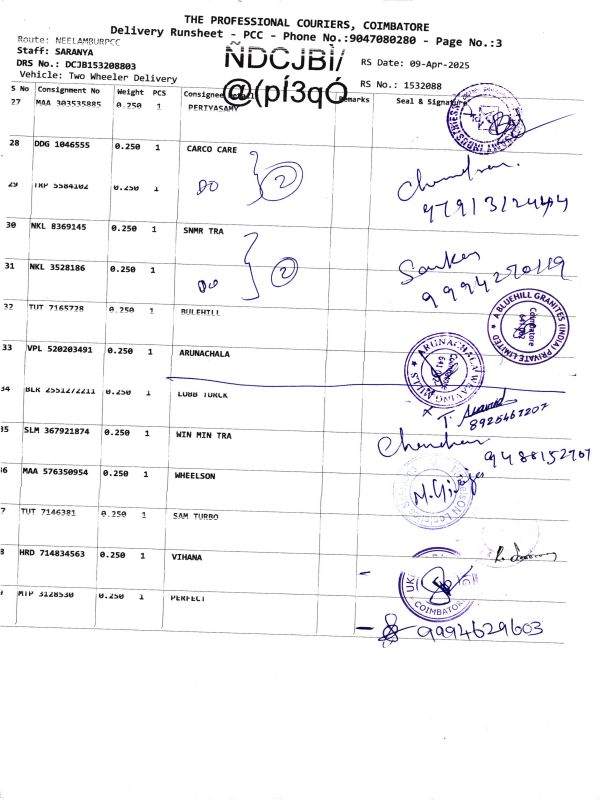 THE PROFESSIONAL COURIERS, COIMBATORE
Delivery Runsheet - PCC - Phone No.:9047080280 - Page No.:3
Route: NEELAMBURPCC
Staff: SARANYA
DRS No.: DCJB153208803
Vehicle: Two Wheeler Delivery
ÑDCJBÌ/
@(pÍ3qÓ
RS Date: 09-Apr-2025
RS No.: 1532088
S No Consignment No Weight PCS Consignee Detail Remarks Seal & Signature
27 MAA 303535885 0.250 1 PERIYASAMY
28 DDG 1046555 0.250 1 CARCO CARE
29 TRP 5584102 0.250 1 DO 2
9791312444
30 NKL 8369145 0.250 1 SNMR TRA
31 NKL 3528186 0.250 1 DO 2
32 TUT 7165728 0.250 1 BULEHILL
A BLUEHILL GRANITES (INDIA) PRIVATE LIMITED
Coimbatore
33 VPL 520203491 0.250 1 ARUNACHALA
ARUNACHALA WEAVING MILLS
34 BLR 2551272211 0.250 1 LUBB TURCK
8925467207
35 SLM 367921874 0.250 1 WIN MIN TRA
9488152707
36 MAA 576350954 0.250 1 WHEELSON
7 TUT 7146381 0.250 1 SAM TURBO
8 HRD 714834563 0.250 1 VIHANA
COIMBATORE
9 MTP 3128530 0.250 1 PERFECT
9994629603